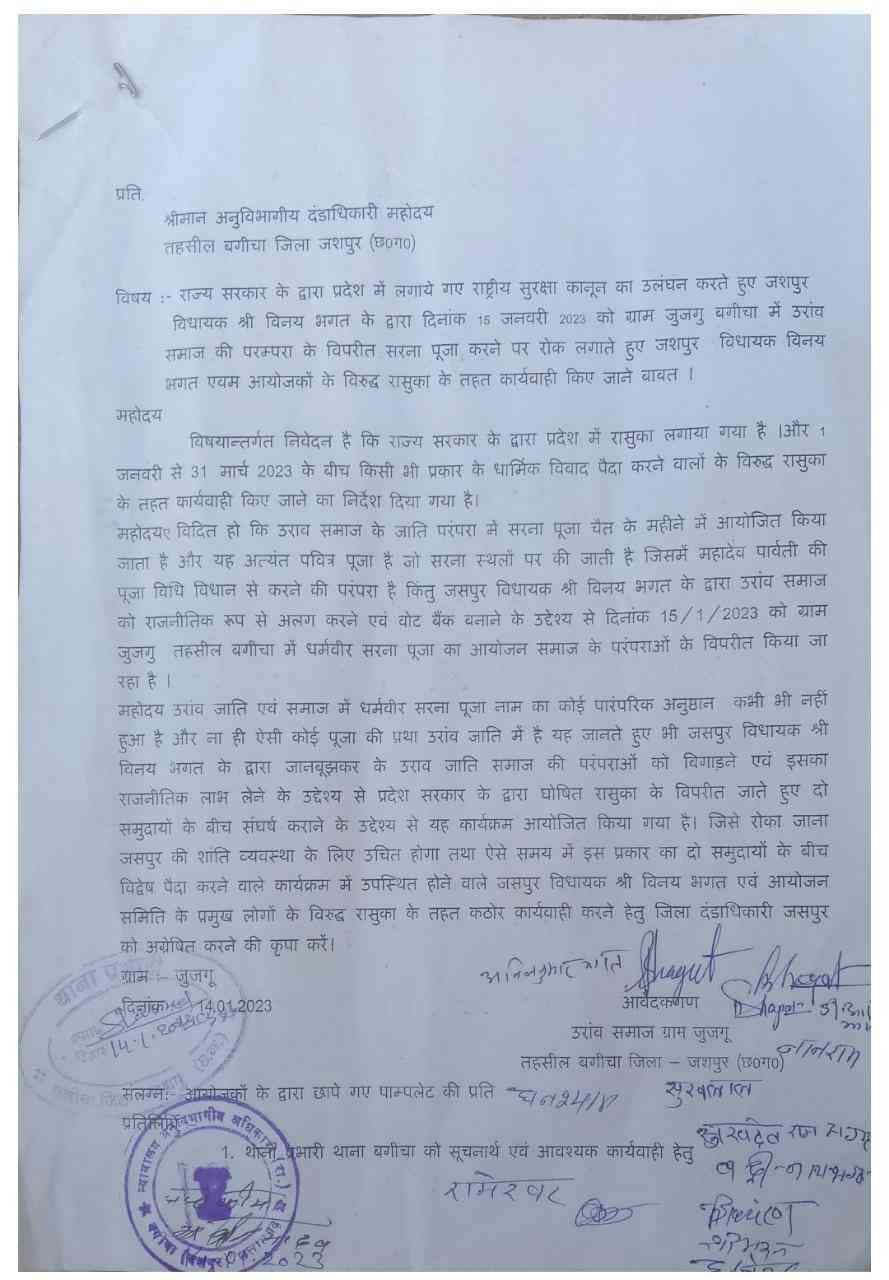 प्रति,
श्रीमान अनुविभागीय दंडाधिकारी महोदय
तहसील बगीचा जिला जशपुर (छ0ग0)
विषय :- राज्य सरकार के द्वारा प्रदेश में लगाये गए राष्ट्रीय सुरक्षा कानून का उलंघन करते हुए जशपुर
विधायक श्री विनय भगत के द्वारा दिनांक 15 जनवरी 2023 को ग्राम जुजगु बगीचा में उरांव
समाज की परम्परा के विपरीत सरना पूजा करने पर रोक लगाते हुए जशपुर विधायक विनय
भगत एवम आयोजकों के विरुद्ध रासुका के तहत कार्यवाही किए जाने बावत ।
महोदय
विषयान्तर्गत निवेदन है कि राज्य सरकार के द्वारा प्रदेश में रासुका लगाया गया है ।और 1
जनवरी से 31 मार्च 2023 के बीच किसी भी प्रकार के धार्मिक विवाद पैदा करने वालों के विरुद्ध रासुका
के तहत कार्यवाही किए जाने का निर्देश दिया गया है।
महोदयए विदित हो कि उराव समाज के जाति परंपरा में सरना पूजा चैत के महीने में आयोजित किया
जाता है और यह अत्यंत पवित्र पूजा है जो सरना स्थलों पर की जाती है जिसमें महादेव पार्वती की
पूजा विधि विधान से करने की परंपरा है किंतु जसपुर विधायक श्री विनय भगत के द्वारा उरांव समाज
को राजनीतिक रूप से अलग करने एवं वोट बैंक बनाने के उद्देश्य से दिनांक 15/1/2023 को ग्राम
जुजगु तहसील बगीचा में धर्मवीर सरना पूजा का आयोजन समाज के परंपराओं के विपरीत किया जा
रहा है ।
महोदय उरांव जाति एवं समाज में धर्मवीर सरना पूजा नाम का कोई पारंपरिक अनुष्ठान कभी भी नहीं
हुआ है और ना ही ऐसी कोई पूजा की प्रथा उरांव जाति में है यह जानते हुए भी जसपुर विधायक श्री
विनय भगत के द्वारा जानबूझकर के उराव जाति समाज की परंपराओं को बिगाड़ने एवं इसका
राजनीतिक लाभ लेने के उद्देश्य से प्रदेश सरकार के द्वारा घोषित रासुका के विपरीत जाते हुए दो
समुदायों के बीच संघर्ष कराने के उद्देश्य से यह कार्यक्रम आयोजित किया गया है। जिसे रोका जाना
जसपुर की शांति व्यवस्था के लिए उचित होगा तथा ऐसे समय में इस प्रकार का दो समुदायों के बीच
विद्वेष पैदा करने वाले कार्यक्रम में उपस्थित होने वाले जसपुर विधायक श्री विनय भगत एवं आयोजन
समिति के प्रमुख लोगों के विरुद्ध रासुका के तहत कठोर कार्यवाही करने हेतु जिला दंडाधिकारी जसपुर
को अग्रेषित करने की कृपा करें।
ग्राम :- जुजगू
Bhagat Bhagat
दिनांक 14.01.2023
आवेदकगण
Bhagat
उरांव समाज ग्राम जुजगू
तहसील बगीचा जिला – जशपुर (छ0ग0)
थाना प्रभारी
संलग्न:- आयोजकों के द्वारा छापे गए पाम्पलेट की प्रति
प्रतिलिपि
1. थाना प्रभारी थाना बगीचा को सूचनार्थ एवं आवश्यक कार्यवाही हेतु
न्यायालय अनुविभागीय अधिकारी (रा.)
2023